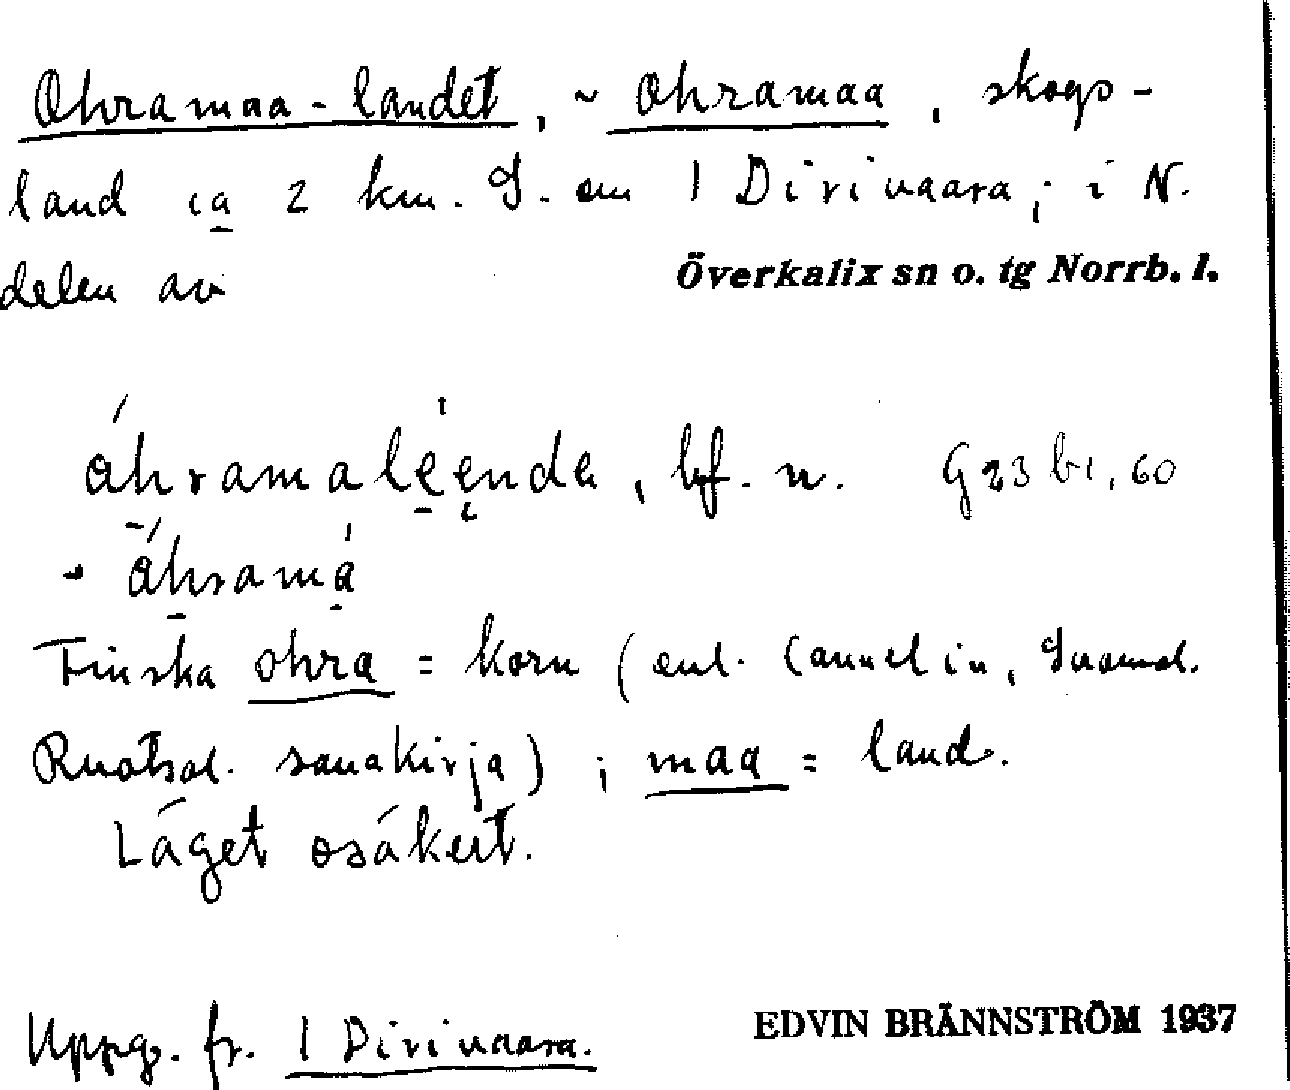 Ohramaa-landet, ~ Ohramaa, skogs-
land ca 2 km. S. om 1 Dirivaara; i N.
delen av Överkalix sn o. tg Norrb. l.
bf. n. G23 b1, 60
Finska ohra = korn (enl. Cannelin, Suomal.
Ruotsal. sanakirja); maa = land.
Läget osäkert.
Uppg. fr. 1 Dirivaara.
EDVIN BRÄNNSTRÖM 1937